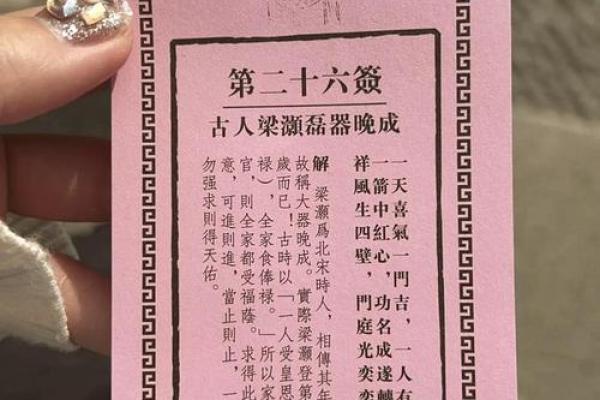 第二十六簽
古人梁灝磊器晚成
一天喜氣一門吉，一人有
一箭中紅心，功名成遂轉
祥風生四壁，門庭光奕奕
解 梁灝爲北宋時人，相傳其年
故稱大器晚成。實際梁灝登第
歲而已！古時以「一人受皇恩
禄），全家食俸禄。」所以家
官，則全家都受福蔭。求得此
意，可進則進，當止則止，一
勿强求則得天佑。